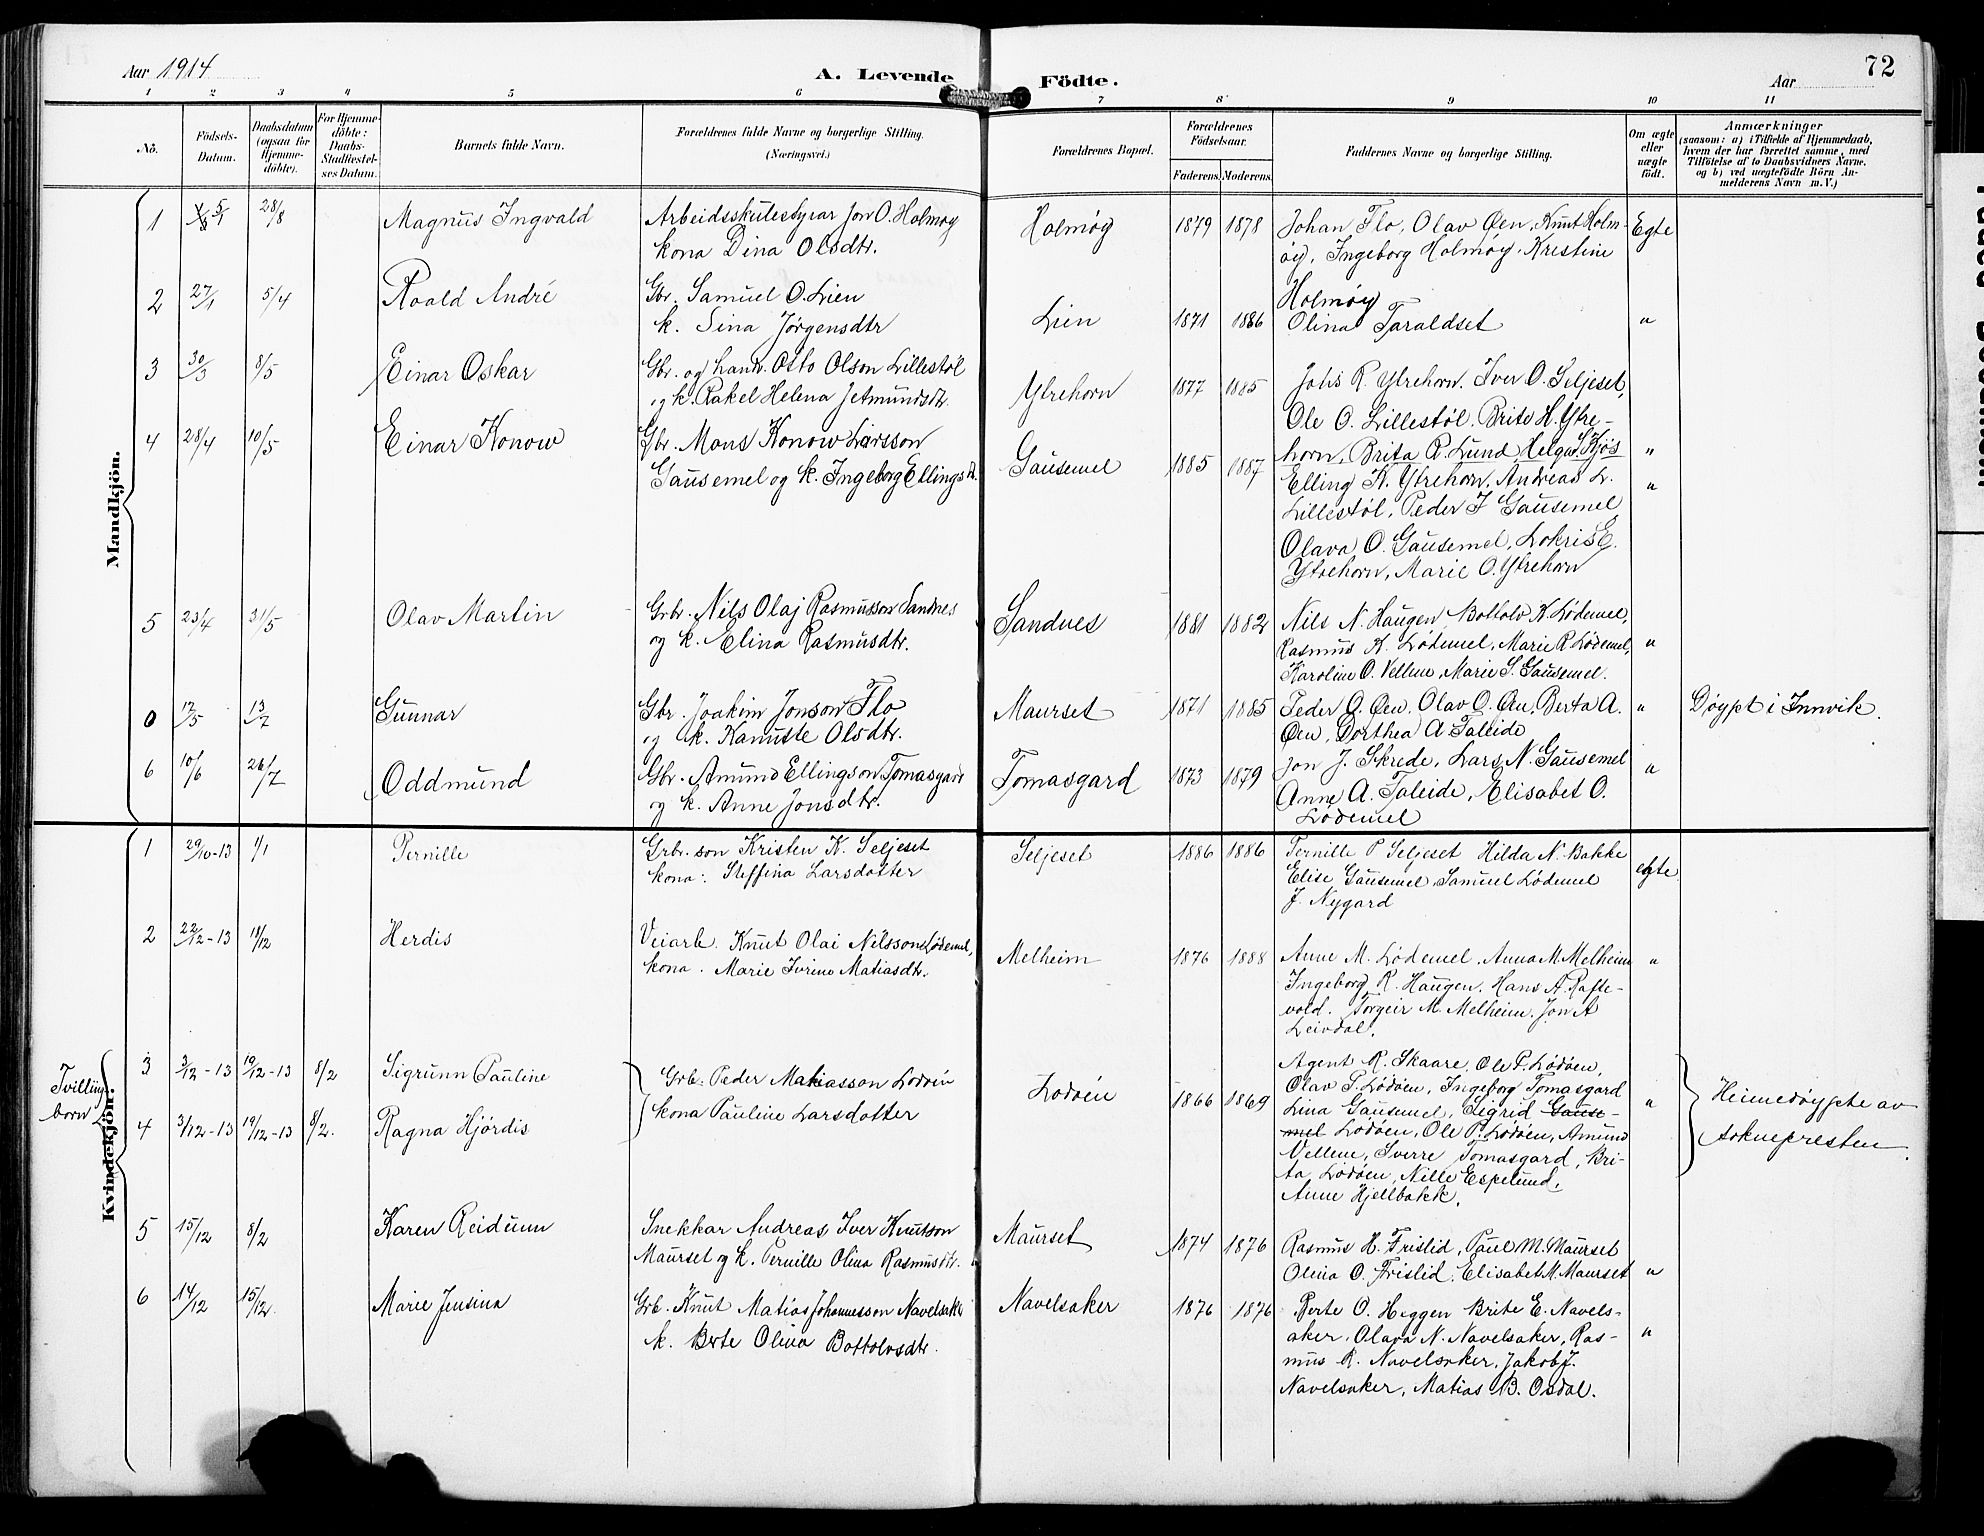 Aar 1914
A. Levende
Födte.
Aar
72
1 2 3 4 5 6 7 8 9 10 11
No.
Födsels-
Datum.
Daabsdatum
(ogsaa for
Hjemme-
döbte).
For Hjemme-
döbte:
Daabs-
Stadfæstel-
ses Datum.
Barnets fulde Navn.
Forældrenes fulde Navne og borgerlige Stilling.
(Næringsvei.)
Forældrenes Bopæl.
Forældrenes
Födselsaar.
Faderens. Moderens.
Faddernes Navne og borgerlige Stilling.
Om ægte
eller
uægte
födt.
Anmærkninger
(saasom: a) i Tilfælde af Hjemmedaab,
hvem der har forrettet samme, med
Tilföielse af to Daabsvidners Navne.
og b) ved uægtefödte Börn An-
melderens Navn m.V.)
Mandkjön.
1 5/1 28/8 Magnus Ingvald
Arbeidsskulestyrar Jon O. Holmøy
kona Dina Olsdtr.
Holmøy 1879 1878
Johan Flo, Olav Øen, Knut Holm-
øy, Ingeborg Holmøy, Kristine
Holmøy
Egte
2 27/1 5/4 Roald André
Gbr. Samuel O. Lien
k. Sina Jörgensdtr
Lien 1871 1886
Olina Taraldset
"
3 30/3 8/5 Einar Oskar
Gbr. og hand. Otto Olson Lillestøl
og k. Rakel Helena Jetmundsdtr.
Ytrehorn 1877 1885
Johs R. Ytrehorn. Iver O. Seljeset,
Ole O. Lillestøl. Brite H. Ytre-
horn, Brita R. Lund, Helga S. Kjøs
"
4 28/4 10/5 Einar Konow
Gbr. Mons Konow Larsson
Gausemel og k. Ingeborg Ellingsdt.
Gausemel 1885 1887
Elling K. Ytrehorn, Andreas L.
Lillestøl, Peder J Gausemel
Olava O. Gausemel, Lokris E.
Ytrehorn, Marie O. Ytrehorn
"
5 23/4 31/5 Olav Martin
Grbr. Nils Olaj Rasmusson Sandnes
og k. Elina Rasmusdtr.
Sandnes 1881 1882
Nils N. Haugen, Bottolv K. Lødemel,
Rasmus K. Lødemel, Marie R. Lødemel,
Karoline O. Vellene, Marie S. Gausemel.
"
0 17/5 13/7 Gunnar
Gbr. Joakim Jonson Flo
og k. Kanutte Olsdtr.
Maurset 1871 1885
Peder O. Øen, Olav O. Øen, Berta A.
Øen, Dorthea A. Faleide
" Døypt i Innvik.
6 10/6 26/7 Oddmund
Gbr. Amund Ellingson Tomasgard
og k. Anne Jonsdtr.
Tomasgard 1873 1879
Jon J. Skrede, Lars N. Gausemel
Anne A. Faleide, Elisabet O.
Lødemel
"
Kvindekjön.
1 29/10-13 1/1 Pernille
Grbr. son Kristen K. Seljeset
kona: Steffina Larsdotter
Seljeset 1886 1886
Pernille P Seljeset Hilda N. Bakke
Elise Gausemel, Samuel Lødemel
J. Nygard
egte
2 22/12-13 18/12 Herdis
Veiarb. Knut Olai Nilsson Lødemel,
kona. Marie Ivrine Matiasdtr.
Melheim 1876 1888
Anne M. Lødemel, Anna M Melheim
Ingeborg R. Haugen, Hans A. Rafte-
vold. Torgeir M. Melheim. Jon A
Leivdal.
"
Tvilling-
born
3 3/12-13 19/12-13 8/2 Sigrunn Pauline
4 3/12-13 19/12-13 8/2. Ragna Hjördis
Grb: Peder Matiasson Lodöen
kona Pauline Larsdotter
Lodöen 1866 1869
Agent R. Skaare, Ole P. Lödöen,
Olav P. Lödöen, Ingeborg Tomasgard
Lina Gausemel, Sigrid Gause-
mel Lodöen, Ole P. Lödöen, Amund
Vellene, Sverre Tomasgard, Bri-
ta Lodöen, Nille Espelund,
Anne Hjellbakk.
"
Heimedøypte av
soknepresten.
5 15/12 8/2 Karen Reidunn
Snekkar Andreas Iver Knutson
Maurset og k. Pernille Olina Rasmusdtr.
Maurset 1874 1876
Rasmus H. Frislid, Paul M. Maurset
Olina O. Frislid, Elisabet M. Maurset
"
6 14/12 15/12. Marie Jensina
Grb. Knut Matias Johannesson Navelsaker
k. Berte Olina Bottolvsdtr.
Navelsaker 1876 1876
Berte O. Heggen Brite E. Navels-
aker, Olava N. Navelsaker, Ras-
mus R. Navelsaker, Jakob J.
Navelsaker, Matias B. Osdal.
"